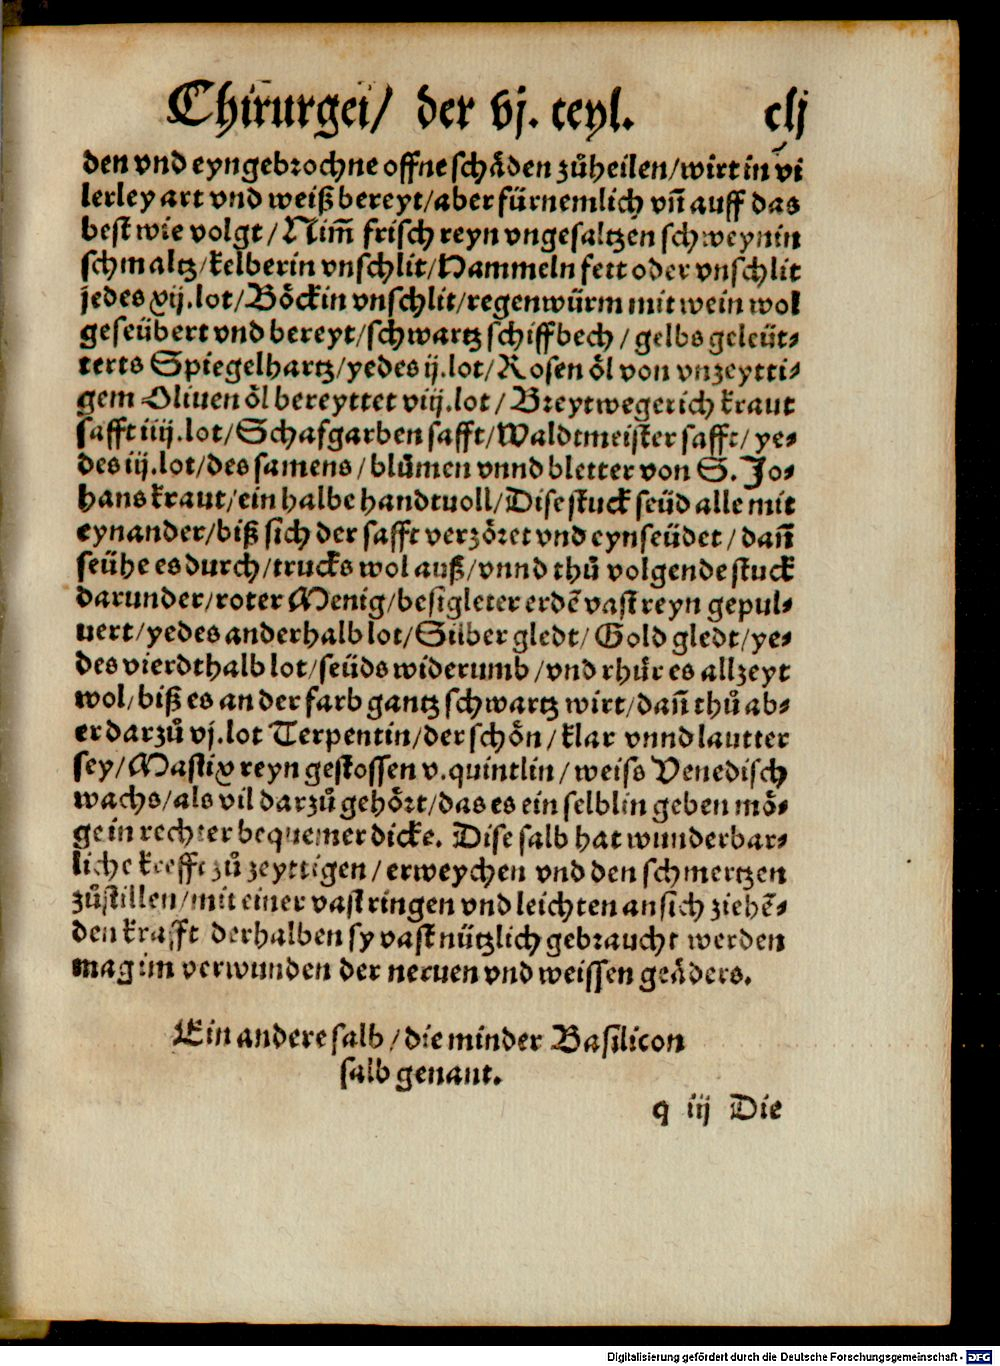 Chirurgei/ der vj. teyl. clj
den vnd eyngebrochne offne schäden zůheilen/wirt in vi
lerley art vnd weiß bereyt/aber fürnemlich vn̄ auff das
best wie volgt/Nim̄ frisch reyn vngesaltzen schweynin
schmaltz/kelberin vnschlit/Hammeln fett oder vnschlit
jedes xij.lot/Böckin vnschlit/regenwürm mit wein wol
geseübert vnd bereyt/schwartz schiffbech/gelbs geleüt⸗
terts Spiegelhartz/yedes ij.lot/Rosen öl von vnzeytti⸗
gem Oliuen öl bereyttet viij.lot/Breytwegerich kraut
safft iiij.lot/Schafgarben safft/Waldtmeister safft/ye⸗
des iij.lot/des samens/blůmen vnnd bletter von S. Jo⸗
hans kraut/ein halbe handtuoll/Dise stuck seüd alle mit
eynander/biß sich der safft verzöret vnd eynseüdet/dan̄
seühe es durch/trucks wol auß/vnnd thů volgende stuck
darunder/roter Menig/besigleter erdē vast reyn gepul⸗
uert/yedes anderhalb lot/Silber gledt/Gold gledt/ye⸗
des vierdthalb lot/seüds widerumb/vnd rhůr es allzeyt
wol/biß es an der farb gantz schwartz wirt/dan̄ thů ab⸗
er darzů vj.lot Terpentin/der schön/klar vnnd lautter
sey/Mastix reyn gestossen v.quintlin/weiss Venedisch
wachs/als vil darzů gehört/das es ein selblin geben mö⸗
ge in rechter bequemer dicke. Dise salb hat wunderbar⸗
liche krefft zů zeyttigen/erweychen vnd den schmertzen
zůstillen/mit einer vast ringen vnd leichten an sich ziehē⸗
den krafft derhalben sy vast nützlich gebraucht werden
mag im verwunden der neruen vnd weissen geäders.
Ein andere salb/die minder Basilicon
salb genant.
q iij Die
Digitalisierung gefördert durch die Deutsche Forschungsgemeinschaft - DFG